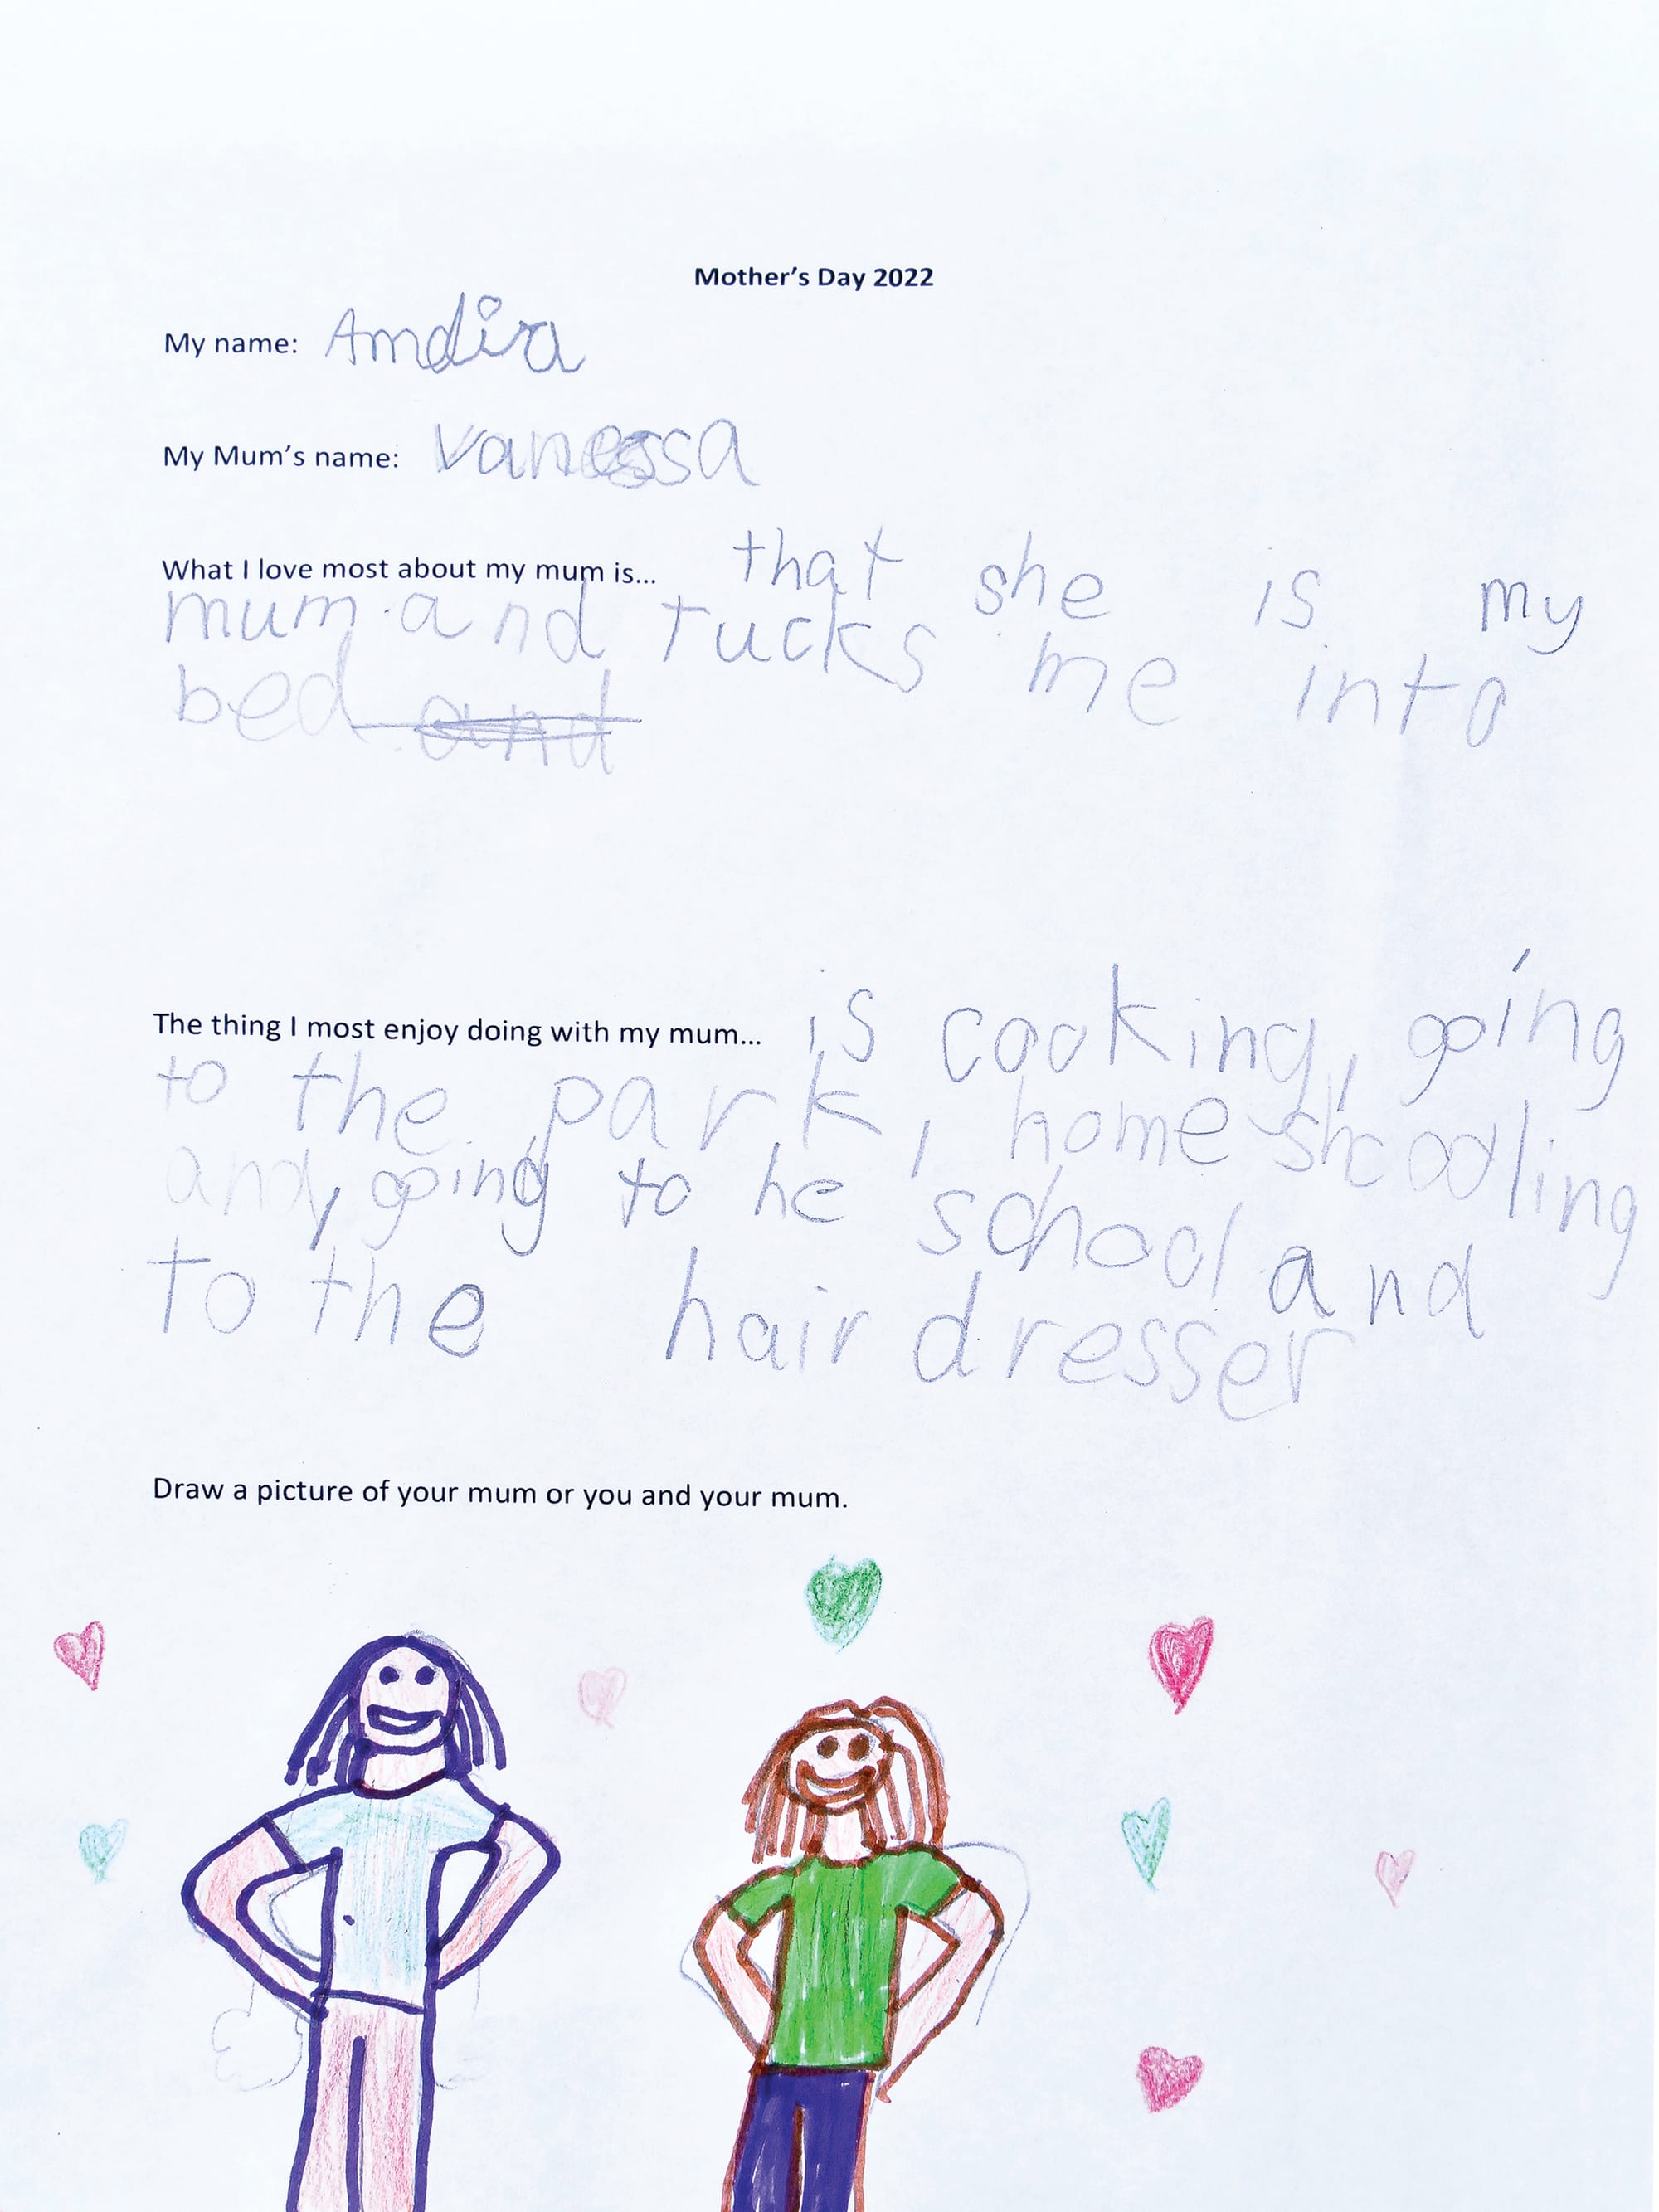 Mother's Day 2022
My name: Amdira
My Mum's name: Vanessa
What I love most about my mum is... that she is my
mum and tucks me into
bed and
The thing I most enjoy doing with my mum... is cooking, going
to the park, home shcoolling
and, going to he school and
to the hair dresser
Draw a picture of your mum or you and your mum.